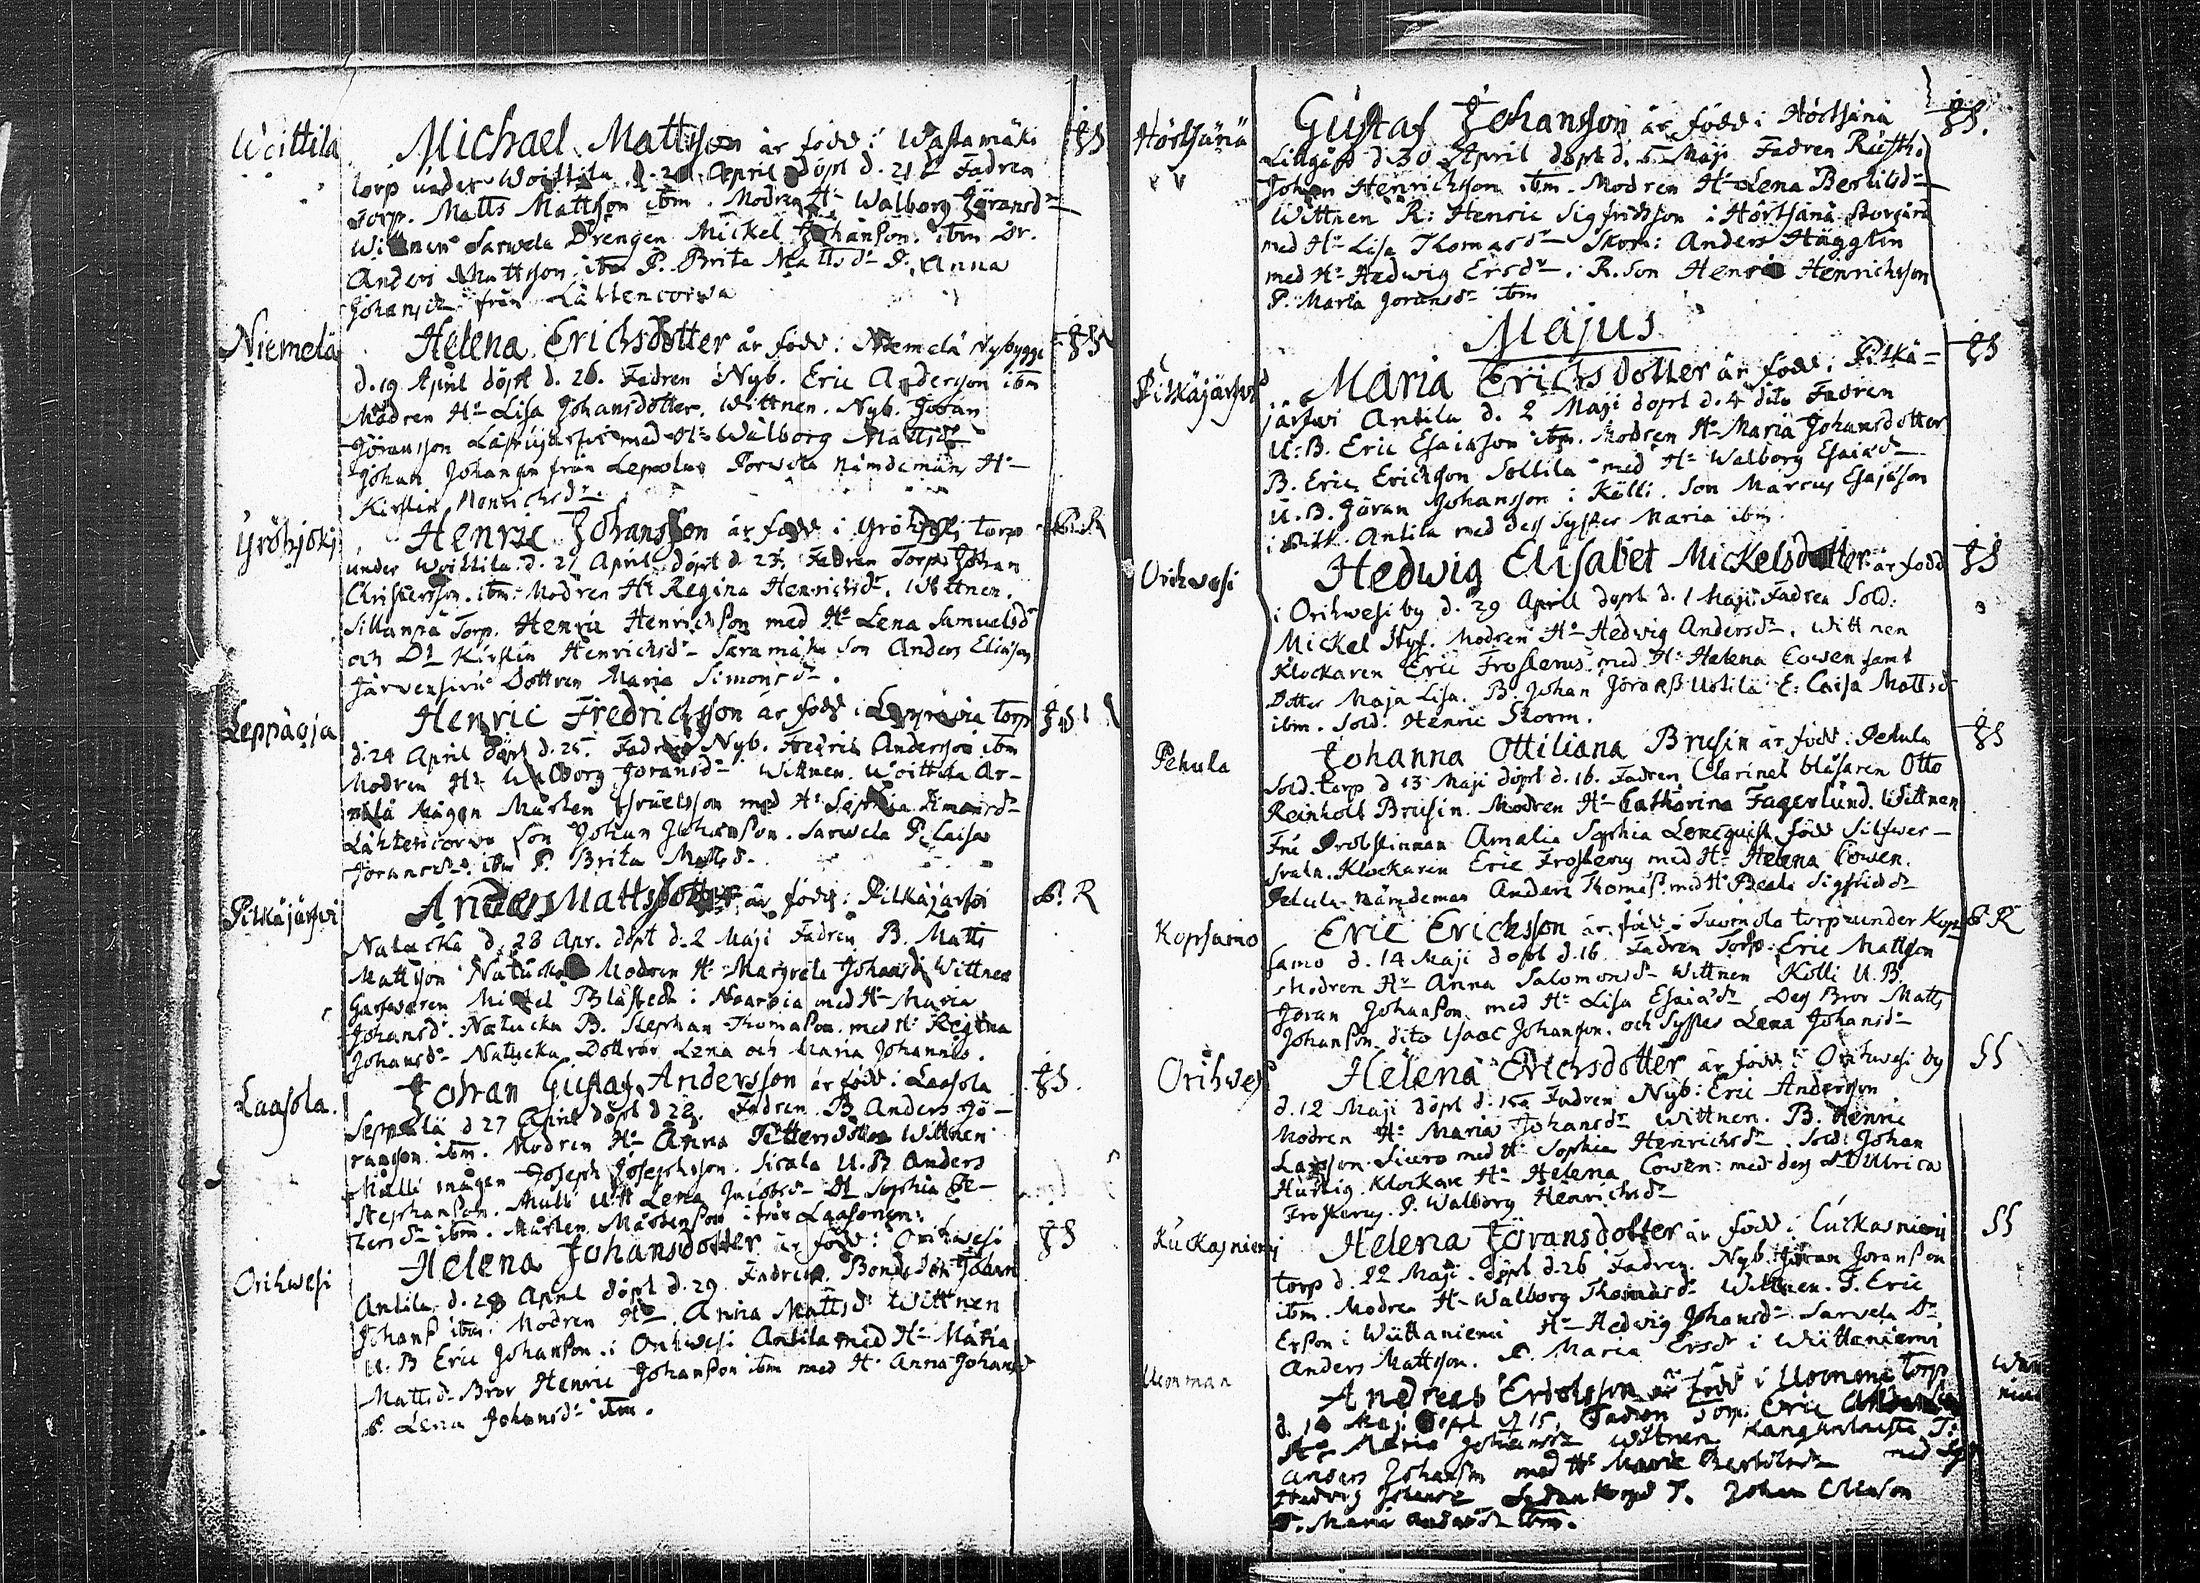 Woittila
Michael Mattsson är född i Wästamäki
torp under Woittila d. 20 April döpt d. 21 Fadren
Torp. Matts Mattsson ibm. Modren Hu Walborg Göransdr
Wittnen Sarwela Drengen Mickel Johanson ibm Dr.
Anders Mattsson ibm P. Brita Mattsdr P. Anna
Johansdr från Lähtencorwa
Niemelä
Helena Erichsdotter är född i Niemelä Nybygge
d. 19 April döpt d. 26. Fadren Nyb. Eric Andersson ibm
Modren Hu Lisa Johansdotter. Wittnen. Nyb. Johan
Göransson med Hu Walborg Mattsdr
Johan Johanson från Nämdeman Hu
Kirstin Henrichsdr
Gröhjoki
Henric Johansson är född i Gröhjoki torp
B. R
under Woittila d. 21 April döpt d. 23. Fadren Torp. Johan
Christersson ibm. Modren Hu Regina Henrichsdr. Wittnen.
Sillanpä Torp. Henric Henrichson med Hu Lena Samuelsdr
och Dr Kirstin Henrichsdr Saramäki Son Anders Eliason
Järvensivu Dottren Maria Simonsdr.
Leppäoja
Henric Fredricsson är född i Leppäoja torp
d. 24 April döpt d. 25. Fadren Nyb. Fredrik Andersson ibm
Modren Hu Walborg Joransdr Wittnen. Woittila Ar-
Mågen Mårten Israelsson med Hu Sophia Simonsdr
Lähtencorwa Son Johan Johanson. Sarwela P. Caisa
Joransdr ibm P. Brita Mattsdr.
Pitkäjärfwi
Mattsdotter är född i Pitkäjärfwi
B. R
Natucka d. 28 Apr. döpt d. 2 Maji Fadren B. Matts
Mattsson Natucka Modren Hu Margreta Johansdr Wittnen
Garfwaren Mickel Blåfield i med Hu Maria
Johansdr. Natucka B. Stephan Thomason med Hu Regina
Johansdr Natucka Dottrar Lena och Maria Johannis.
Laasola.
Johan Gustaf Andersson är född i Laasola
Seppälä d 27 April döpt d 28. Fadren B. Anders Jö-
ransson ibm. Modren Hu Anna Pettersdotter Wittnen
Mälli mågen Joseph Josephsson. Sicala U.B. Anders
Stephanson. Mälli Lena Jacobsdr Dr Sophia Pe-
tersdr ibm. Mårten Mårtenson ifrån Laasonen.
Orihwesi
Helena Johansdotter är född i Orihwesi
Antila d. 28 April döpt d. 29. Fadren Bonde Son Johan
Johans ibm. Modren Hu Anna Mattsdr Wittnen
U. B Eric Johanson i Orihwesi Antila med Hu Maria
Mattsdr Bror Henric Johanson ibm med Hu Anna Johansdr
P. Lena Johansdr ibm.
Hörtsänä
Gustaf Johansson är född i Hörtsänä
Lillgård d. 30 April döpt d. Maji Fadren Rusth.
Johan Henrichsson ibm. Modren Hu Lena Bertilsdr
Wittnen R: Henric Sigfridsson i Hörtsänä Storgård
med Hu Lisa Thomasdr Skom: Anders Hägglin
med Hu Hedwig Ersdr. R. Son Henric Henrichsson
P. Maria Joransdr ibm
Majus
Pitkäjärfwi
Maria Erichsdotter är född i Pitkä-
järfwi Antila d. 2 Maji döpt d. 4 dito Fadren
U: B. Eric Esaiason ibm. Modren Hu Maria Johansdotter
B. Eric Erichson Sollila med Hu Walborg Esaiædr
U. B. Göran Johansson i Källi. Son Marcus Esajason
i Pitk. Antila med dess Syster Maria ibm.
Orihwesi
Hedwig Elisabet Mickelsdotter är född
i Orihwesi by d. 29 April döpt d. 1 Maji Fadren Sold:
Mickel Modren Hu Hedwig Andersdr. Wittnen
Klockaren Eric Frosterus med Hu Helena Cowen samt
Dotter Maja Lisa. B. Johan Jöranss. Uotila E: Caisa Mattsdr
ibm. Sold. Henric Storm.
Pehula
Johanna Ottiliana Brusin är född i Pehula
Sold. torp d 13 Maji döpt d. 16. Fadren Clarinet blåsaren Otto
Reinholt Brusin. Modren Hu Catharina Fagerlund. Wittnen
Fru Probstinnan Amalia Sophia Lencquist född Silfwer-
svan. Klockaren Eric Frosterus med Hu Helena Cowen.
Pehula Nämdeman Anders Thomass. med Hu Beata Sigfridsdr
Kopsamo
Eric Ericksson är född i Torp under Kop-
B R
samo d. 14 Maji döpt d. 16. Fadren Torp. Eric Mattson
Modren Hu Anna Salomonsdr Wittnen Kolli U. B.
Joran Johanson med Hu Lisa Esaiædr Dess Bror Matts
Johanson dito Isaac Johanson. och Syster Lena Johansdr
Orihwesi
Helena Erichsdotter är född i Orihwesi by
SS
d. 12 Maji döpt d. 15 Fadren Nyb: Eric Andersson
Modren Hu Maria Johansdr Wittnen. B. Henric
Larsson Sicero med Hu Sophia Henrichsdr. Sold: Johan
Hurtig. Klockare Hu Helena Cowen med dess Dr Ulrica
Frosterus. P. Walborg Henrichsdr
Kuckasniemi
Helena Jöransdotter är född i Kuckasniemi
SS
torp d. 22 Maji. döpt d. 26 Fadren. Nyb. Jöran Joranson
ibm. Modren Hu Walborg Thomasdr Wittnen. T. Eric
Erson i Wüttaniemi Hu Hedwig Johansdr. Sarwela Dr.
Anders Mattsson. P. Maria Ersdr i Wüttaniemi
Uonman
Andreas Ericksson är född i torp
d. 10 Maj. döpt d 15. Fadren Torp. Eric
Hu Maria Johansdr Wittnen T:
Anders Johanson med Hu Maria med
Hedvig Johansdr T. Johan
P. Maria Andersdr ibm.